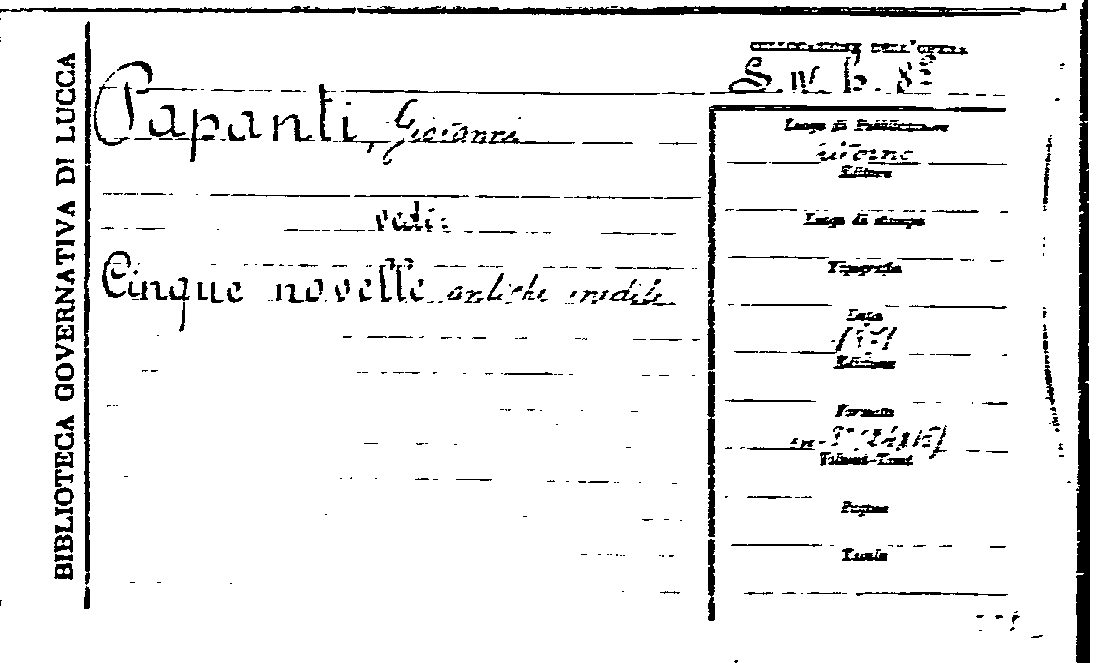 BIBLIOTECA GOVERNATIVA DI LUCCA
COLLOCAZIONE DELL'OPERA
Papanti, Giovanni
vedi:
Cinque novelle antiche inedite
Luogo di Pubblicazione
Livorno
Editore
Luogo di stampa
Tipografia
Data
1871
Edizione
Formato
Volumi-Tomi
Pagine
Tavole